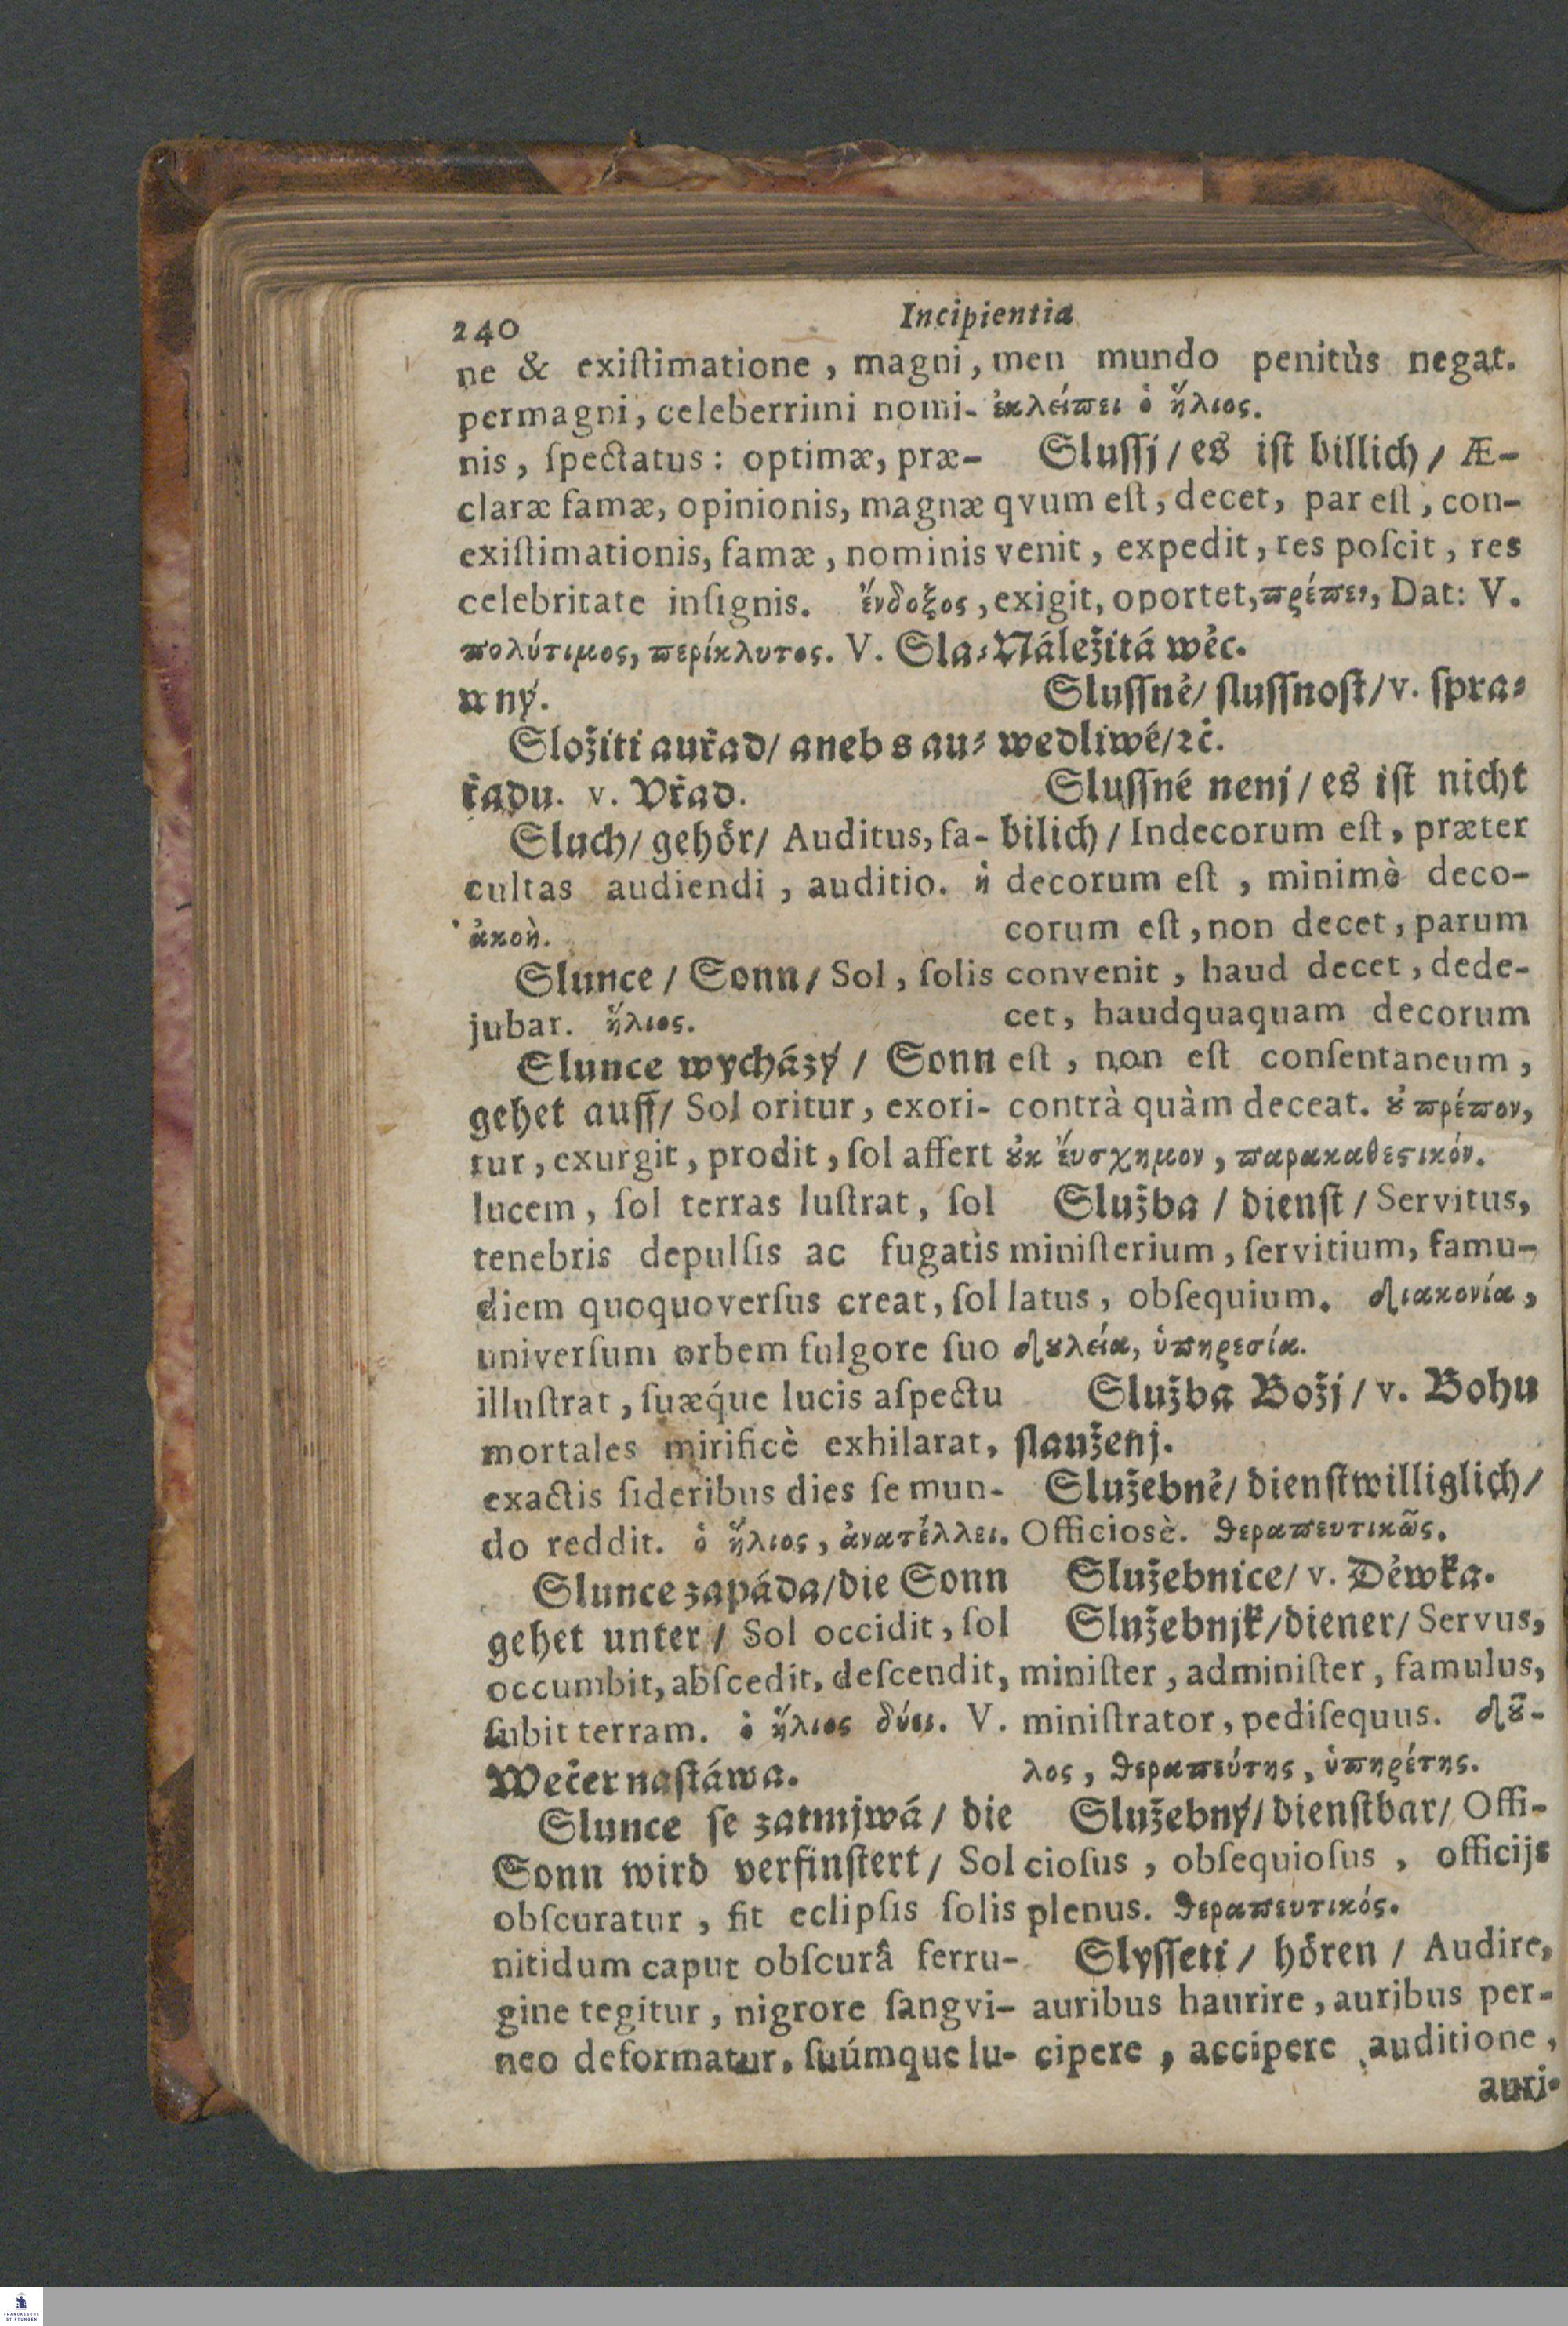 240
Incipientia
ne & exiſtimatione, magni,
permagni, celeberrimi nomi-
nis, ſpectatus: optimæ, præ-
claræ famæ, opinionis, magnæ
exiſtimationis, famæ, nominis
celebritate inſignis. ἔνδοξος,
πολύτιμος, περίκλυτος. V. Sla-
wný.
Složiti auřad/ aneb s au-
řadu. v. Vřad.
Sluch/ gehör/ Auditus, fa-
cultas audiendi, auditio. ἡ
ἀκοὴ.
Slunce / Sonn/ Sol, ſolis
jubar. ἥλιος.
Slunce wycházý / Sonn
gehet auff/ Sol oritur, exori-
tur, exurgit, prodit, ſol affert
lucem, ſol terras luſtrat, ſol
tenebris depulſis ac fugatis
diem quoquoverſus creat, ſol
univerſum orbem fulgore ſuo
illuſtrat, ſuæq́ue lucis aſpectu
mortales mirificè exhilarat,
exactis ſideribus dies ſe mun-
do reddit. ὁ ἥλιος, ἀνατέλλει.
Slunce zapáda/die Sonn
gehet unter/ Sol occidit, ſol
occumbit, abſcedit, deſcendit,
ſubit terram. ὁ ἥλιος δύει. V.
Wečer naſtáwa.
Slunce ſe zatmjwá/ die
Sonn wird verfinſtert/ Sol
obſcuratur, fit eclipſis ſolis
nitidum caput obſcurâ ferru-
gine tegitur, nigrore ſangvi-
neo deformatur, ſuúmque lu-
men mundo penitùs negat.
ἐκλείπει ὁ ἥλιος.
Sluſſj/ es iſt billich/ Æ-
qvum eſt, decet, par eſt, con-
venit, expedit, res poſcit, res
exigit, oportet, πρέπει, Dat: V.
Náležitá wěc.
Sluſſně/ ſluſſnoſt/ v. ſpra-
wedliwé/ꝛč.
Sluſſné nenj/ es iſt nicht
bilich/ Indecorum eſt, præter
decorum eſt, minimè deco-
corum eſt, non decet, parum
convenit, haud decet, dede-
cet, haudquaquam decorum
eſt, non eſt conſentaneum,
contrà quàm deceat. ȣ̓ πρέπον,
ȣ̓κ ἔυσχημον, παρακαθεϛικόν.
Služba / dienſt/ Servitus,
miniſterium, ſervitium, famu-
latus, obſequium. διακονία,
δȣλεία, ὑπηρεσία.
Služba Božj/ v. Bohu
ſlauženj.
Služebně/ dienſtwilliglich/
Officiosè. θεραπευτικῶς.
Služebnice/ v. Děwka.
Služebnjk/diener/ Servus,
miniſter, adminiſter, famulus,
miniſtrator, pediſequus. δȣ͂-
λος, θεραπεύτης, ὑπηρέτης.
Služebný/ dienſtbar/ Offi-
cioſus, obſequioſus, officijs
plenus. θεραπευτικός.
Slyſſeti/ hören / Audire,
auribus haurire, auribus per-
cipere, accipere auditione,
auri-
FRANCKESCHE
STIFTUNGEN